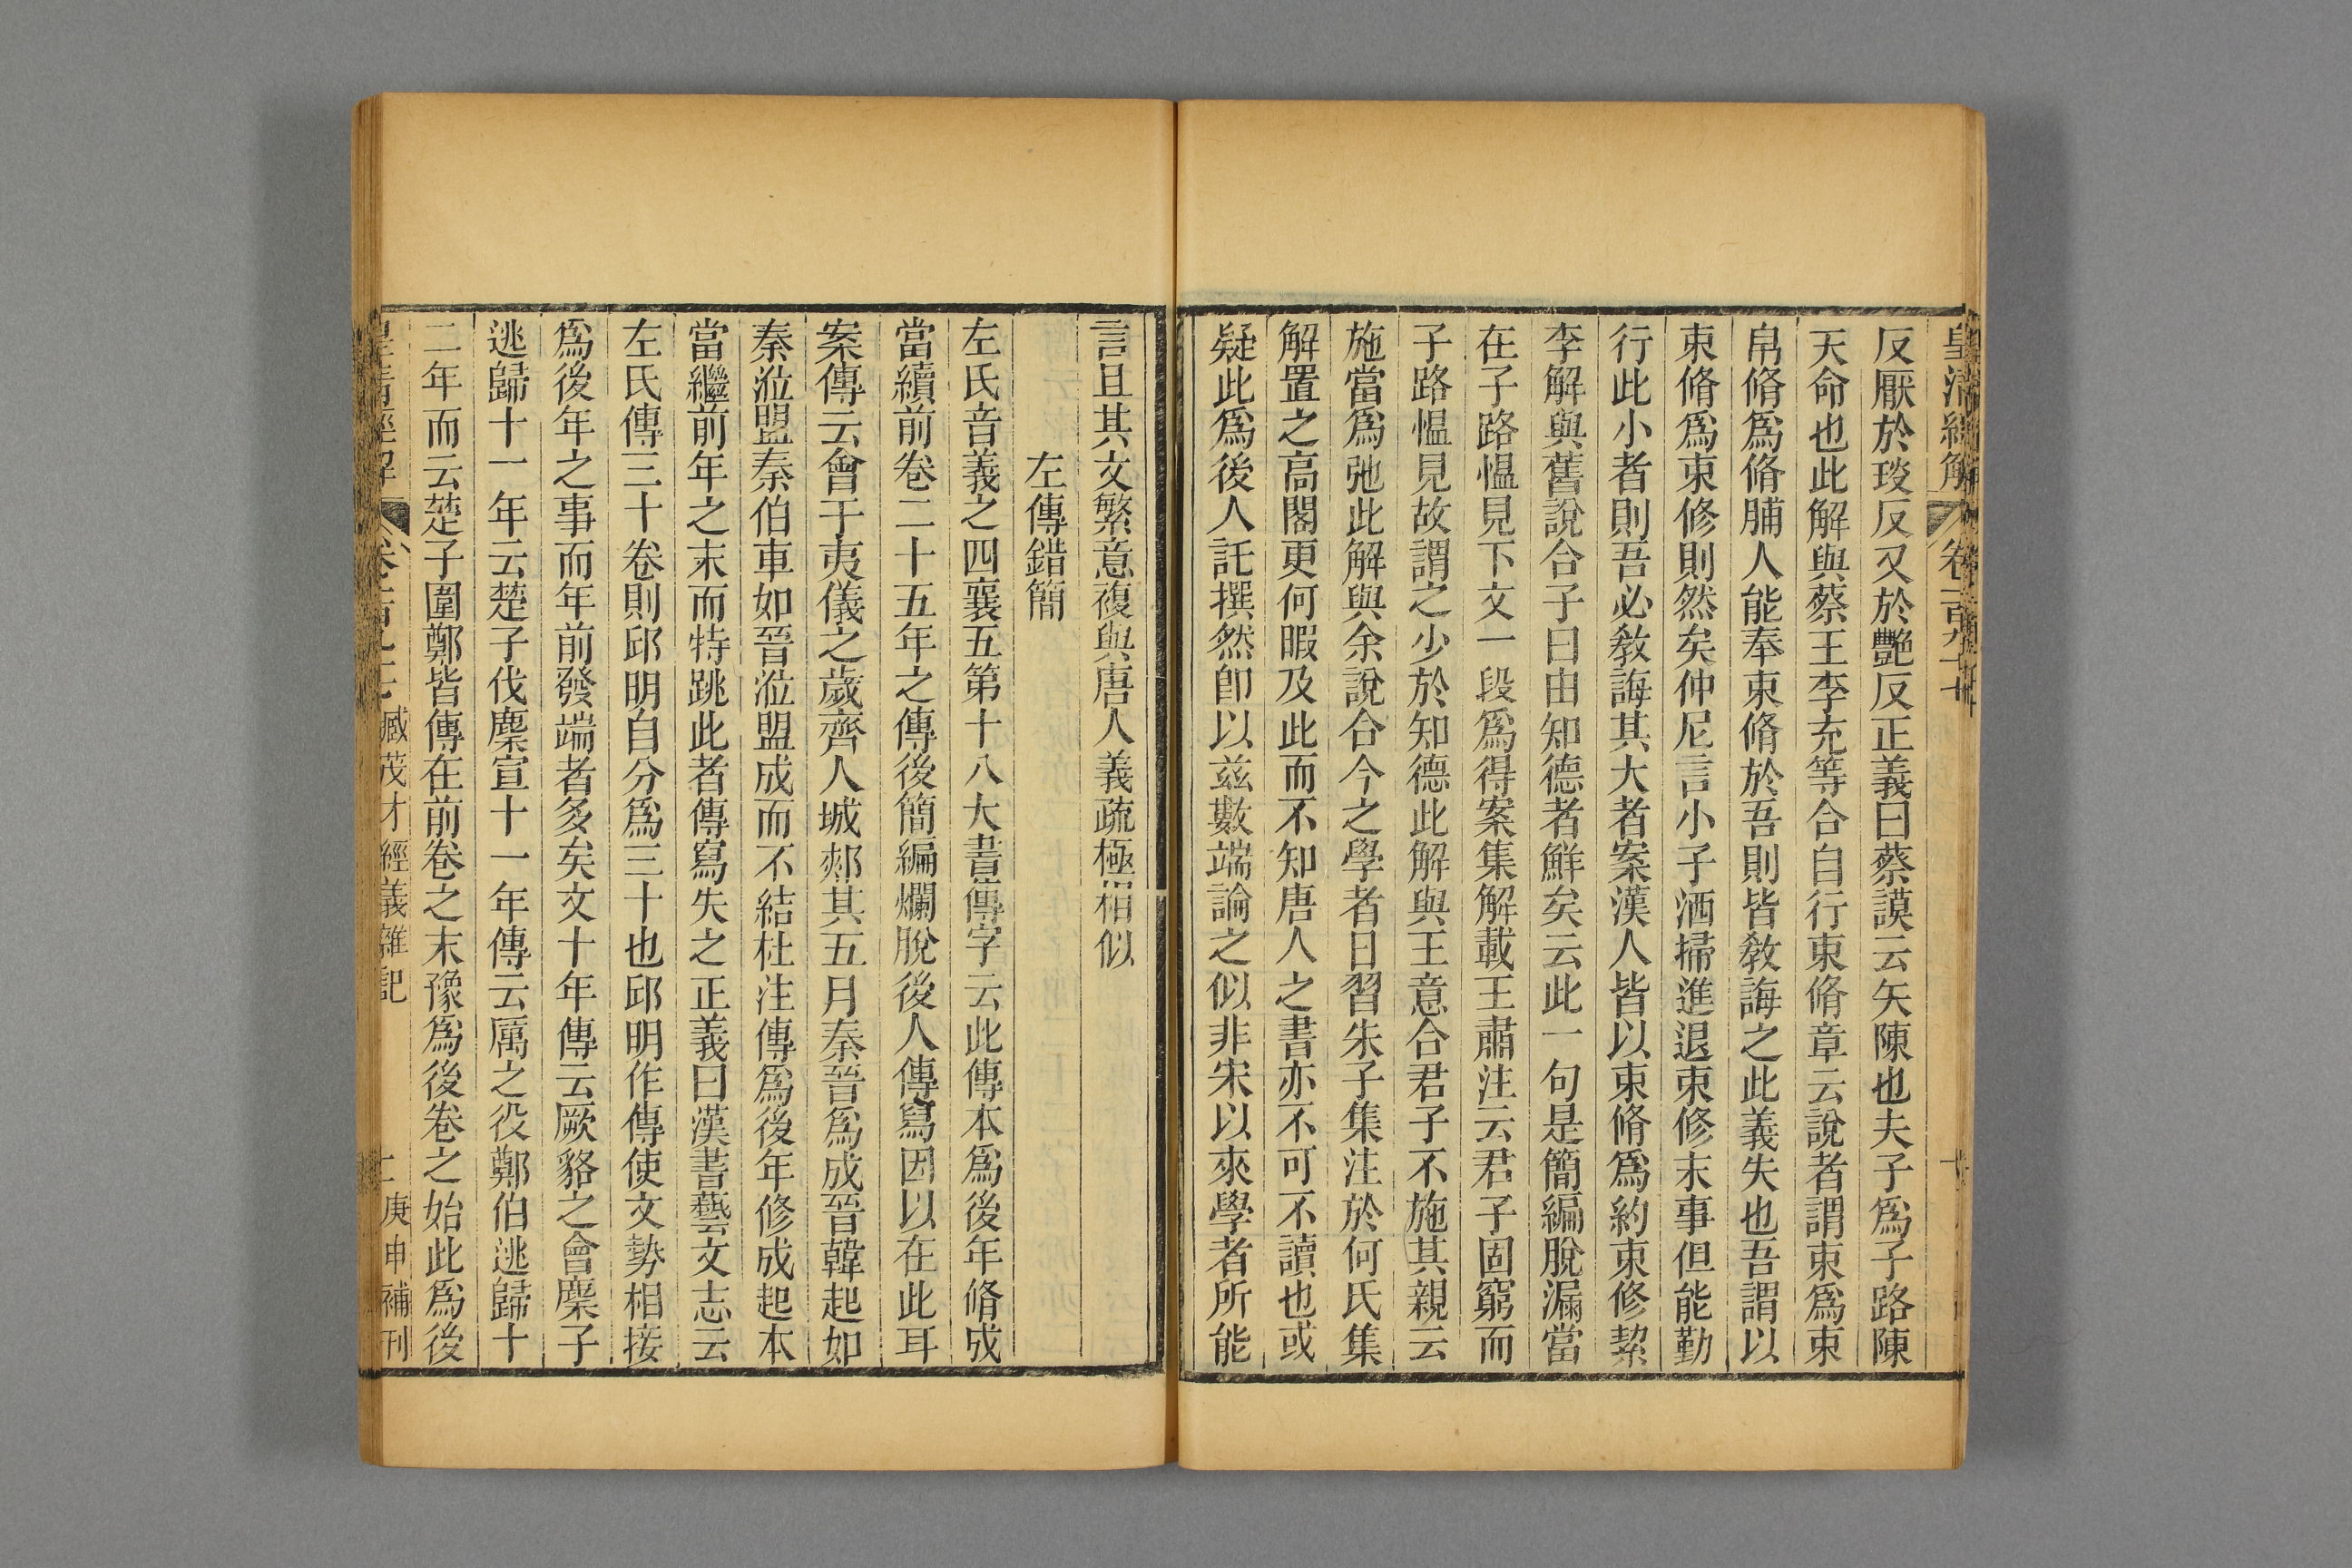 皇清經解
卷二百九十七
十
反厭於琰反又於艷反正義曰蔡謨云矢陳也夫子爲子路陳
天命也此解與蔡王李充等合自行束脩章云說者謂束爲束
帛脩爲脩脯人能奉束脩於吾則皆敎誨之此義失也吾謂以
束脩爲束修則然矣仲尼言小子洒掃進退束修末事但能勤
行此小者則吾必敎誨其大者案漢人皆以束脩爲約束修絜
李解與舊說合子曰由知德者鮮矣云此一句是簡編脫漏當
在子路愠見下文一段爲得案集解載王肅注云君子固窮而
子路愠見故謂之少於知德此解與王意合君子不施其親云
施當爲弛此解與余說合今之學者日習朱子集注於何氏集
解置之高閣更何暇及此而不知唐人之書亦不可不讀也或
疑此爲後人託撰然卽以兹數端論之似非宋以來學者所能
言且其文繁意複與唐人義疏極相似
左傳錯簡
左氏音義之四襄五第十八大書傳字云此傳本爲後年脩成
當續前卷二十五年之傳後簡編爛脫後人傳寫因以在此耳
案傳云會于夷儀之歲齊人城郟其五月秦晉爲成晉韓起如
秦涖盟秦伯車如晉涖盟成而不結杜注傳爲後年修成起本
當繼前年之末而特跳此者傳寫失之正義曰漢書藝文志云
左氏傳三十卷則邱明自分爲三十也邱明作傳使文勢相接
爲後年之事而年前發端者多矣文十年傳云厥貉之會麇子
逃歸十一年云楚子伐麇宣十一年傳云厲之役鄭伯逃歸十
二年而云楚子圍鄭皆傳在前卷之末豫爲後卷之始此爲後
皇清經解
卷二百九十七
臧茂才經義雜記
庚申補刊